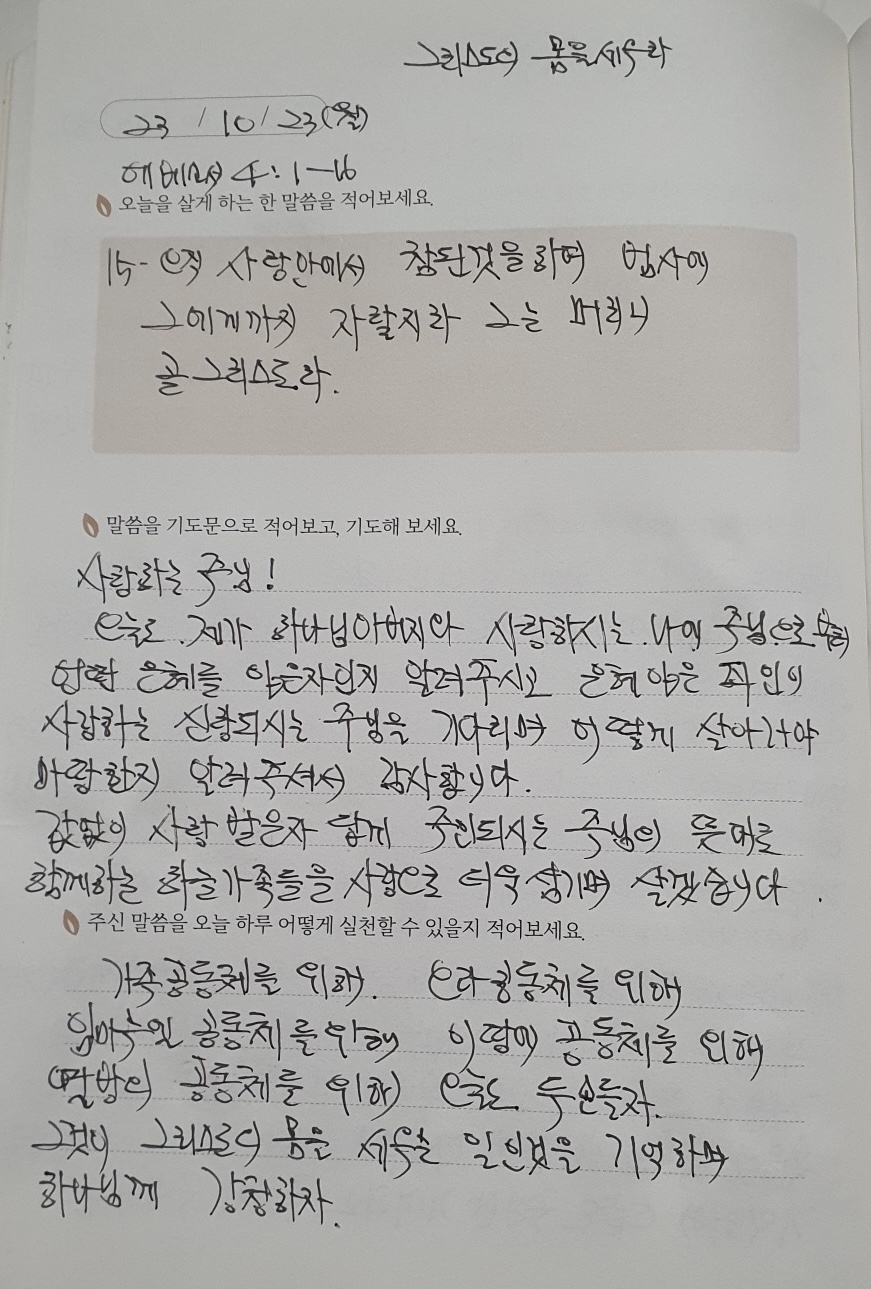 그리스도의 몸을 세우라
23 / 10 / 23 (월)
에베소서 4:1-16
오늘을 살게 하는 한 말씀을 적어보세요.
15- 오직 사랑안에서 참된것을하여 범사에
그에게까지 자랄지라 그는 머리니
곧 그리스도라.
말씀을 기도문으로 적어보고, 기도해 보세요.
사랑하는 주님!
오늘도 제가 하나님아버지와 사랑하시는 나의 주님으로부터
은혜를 입은자인지 알려주시고 은혜입은 죄인이
사랑하는 신랑되시는 주님을 기다리며 어떻게 살아가야
마땅한지 알려주셔서 감사합니다.
값없이 사랑 받은자 답게 주인되시는 주님의 뜻대로
함께하는 하늘가족들을 사랑으로 더욱 섬기며 살겠습니다.
주신 말씀을 오늘 하루 어떻게 실천할 수 있을지 적어보세요.
가족공동체를 위해. 공동체를 위해
공동체를 위해 이땅에 공동체를 위해
열방의 공동체를 위해 오늘도 두손들자.
그것이 그리스도의 몸을 세우는 일인것을 기억하며
하나님께 강청하자.